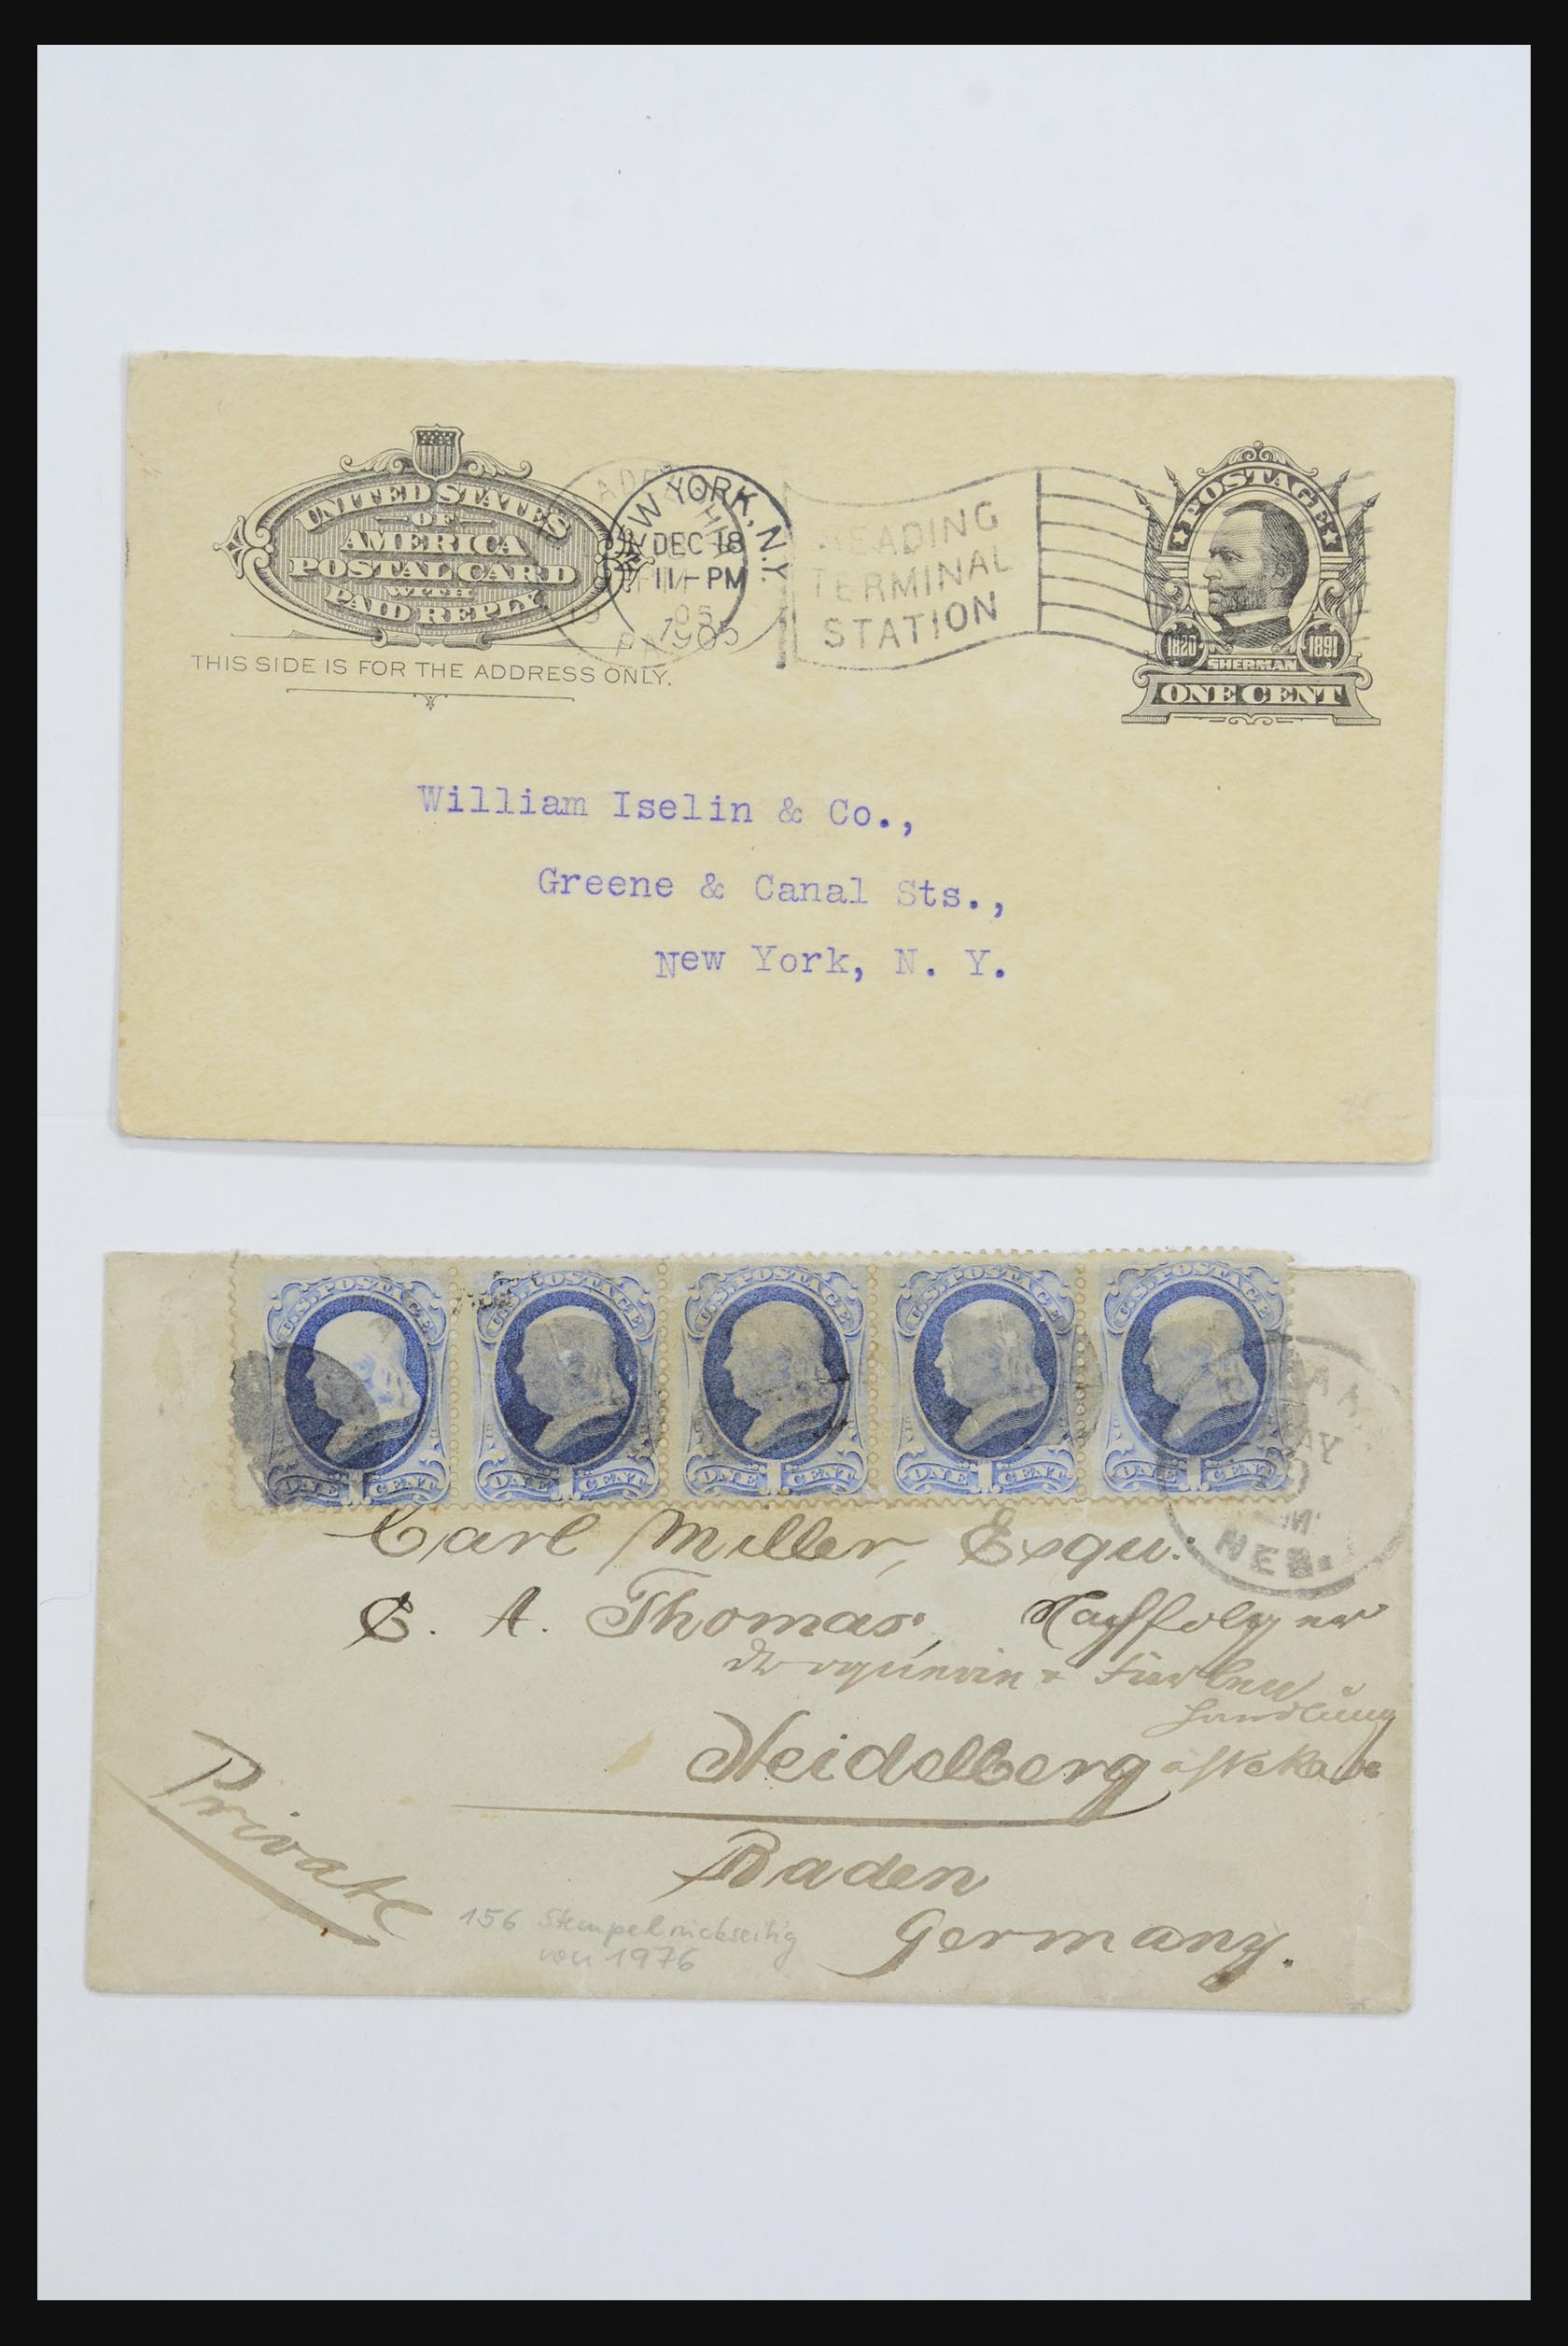 UNITED STATES
OF
AMERICA
POSTAL CARD
WITH
PAID REPLY
THIS SIDE IS FOR THE ADDRESS ONLY.
NEW YORK, N.Y.
DEC 18
11- PM
1905
05
PA
READING
TERMINAL
STATION
POSTAGE
1820 1891
SHERMAN
ONE CENT
William Iselin & Co.,
Greene & Canal Sts.,
New York, N. Y.
U.S. POSTAGE U.S. POSTAGE U.S. POSTAGE U.S. POSTAGE U.S. POSTAGE
ONE 1 CENT ONE 1 CENT ONE 1 CENT ONE 1 CENT ONE 1 CENT
NEB.
Carl Miller, Esqu.
C. A. Thomas, Nachfolger
Handlung
Heidelberg
Baden
Germany.
Private
156 Stempel rückseitig
von 1976